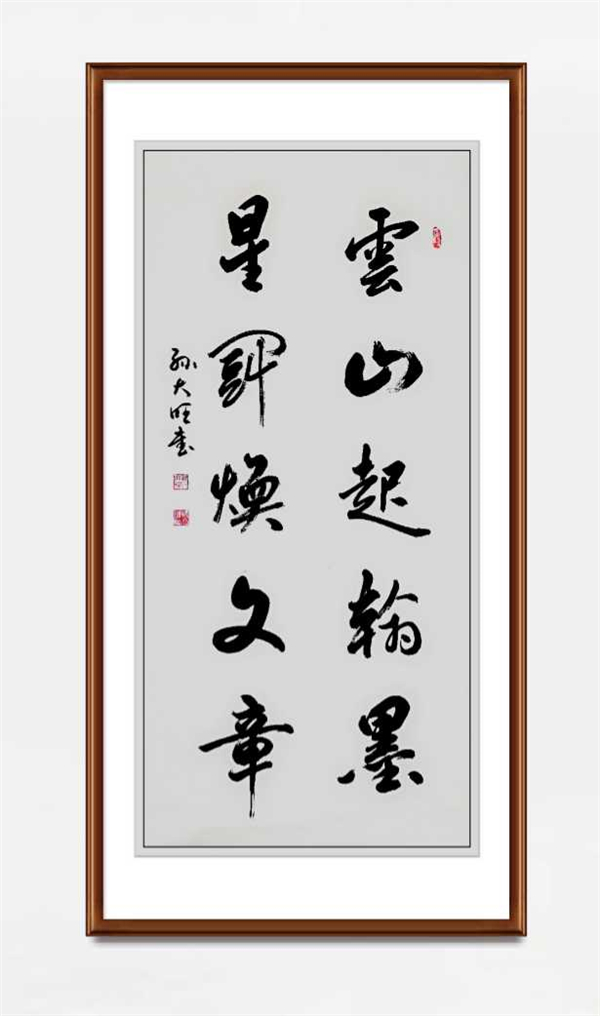 雲山起翰墨
星鬥煥文章
孫大旺書